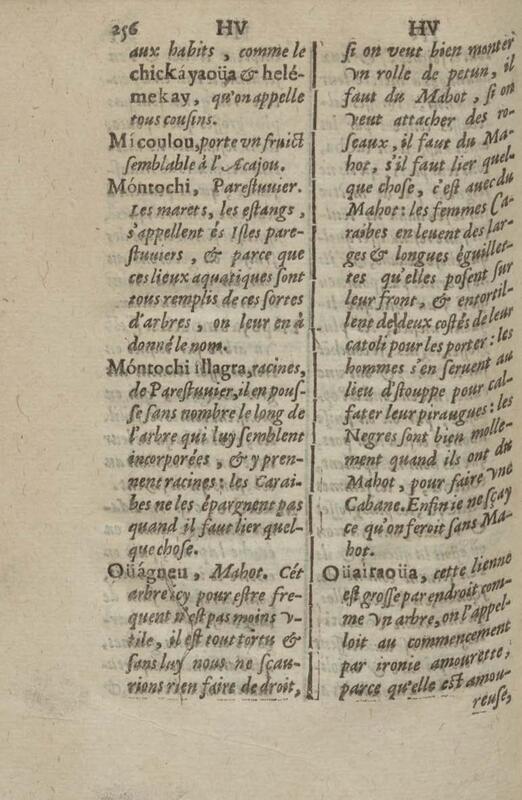 256 HV HV
aux habits, comme le
chickáyaoüa & helé-
mekay, qu'on appelle
tous cousins.
Micoulou, porte vn fruict
semblable à l'Acajou.
Móntochi, Parestuuier.
Les marets, les estangs,
s'appellent és Isles pare-
stuuiers, & parce que
ces lieux aquatiques sont
tous remplis de ces sortes
d'arbres, on leur en à
donné le nom.
Móntochi illagra, racines,
de Parestuuier, il en pous-
se sans nombre le long de
l'arbre qui luy semblent
incorporées, & y pren-
nent racines: les Carai-
bes ne les épargnent pas
quand il faut lier quel-
que chose.
Oüágneu, Mahot. Cét
arbre icy pour estre fre-
quent n'est pas moins v-
tile, il est tout tortu &
sans luy nous ne sçau-
rions rien faire de droit,
si on veut bien monter
vn rolle de petun, il
faut du Mahot, si on
veut attacher des ro-
seaux, il faut du Ma-
hot, s'il faut lier quel-
que chose, c'est auec du
Mahot: les femmes Ca-
raibes en leuent des lar-
ges & longues éguillet-
tes qu'elles posent sur
leur front, & entortil-
lent de deux costés de leur
catoli pour les porter: les
hommes s'en seruent au
lieu d'stouppe pour cal-
fater leur piraugues: les
Negres sont bien molle-
ment quand ils ont du
Mahot, pour faire vne
Cabane. Enfin ie ne sçay
ce qu'on feroit sans Ma-
hot.
Oüairaoüa, cette lienne
est grosse par endroit com-
me vn arbre, on l'appel-
loit au commencement
par ironie amourette,
parce qu'elle est amou-
reuse,